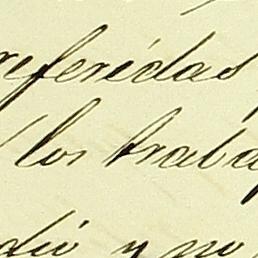 referidas
los traba
dió y no